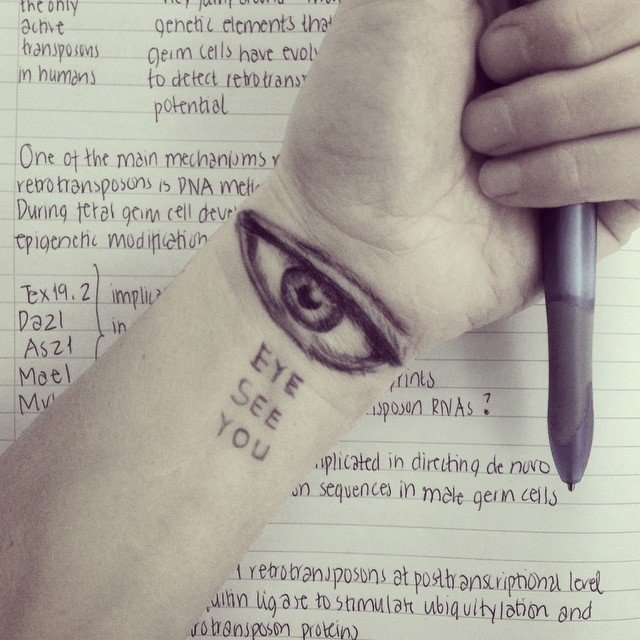 the only
active
transposons
in humans
genetic elements that
germ cells have evol
to detect retrotrans
potential
One of the main mechanisms
retrotransposons is DNA meth
During fetal germ cell deve
epigenetic modification
Tex19.2
Dazl
Asz1
Mael
implic
in
EYE
SEE
YOU
prints
sposon RNAs?
mplicated in directing de novo
on sequences in male germ cells
retrotransposons at posttranscriptional level
quitin ligase to stimulate ubiquitylation and
rotransposon proteins